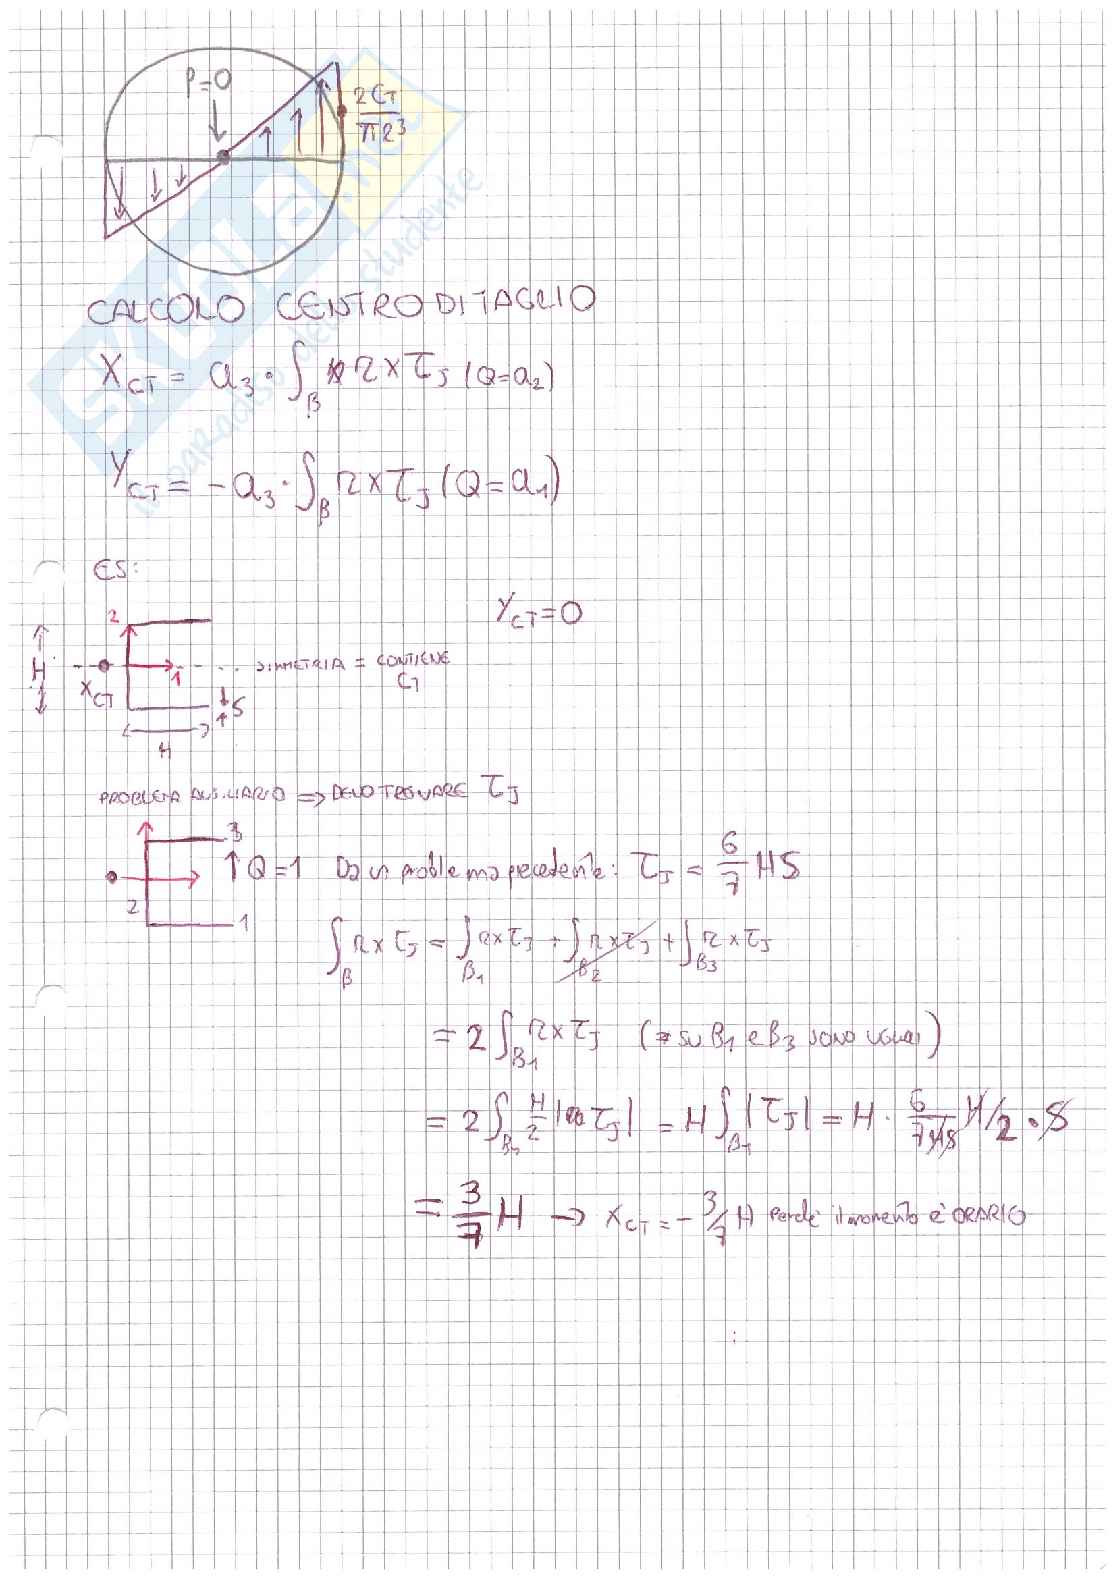 P=0
2CT/πR³
CALCOLO CENTRO DI TAGLIO
X_CT = a₃ · ∫_B r × τ_J (Q=a₂)
Y_CT = -a₃ · ∫_B r × τ_J (Q=a₁)
ES:
Y_CT = 0
2
H
1
SIMMETRIA = CONTIENE
CT
X_CT
S
H
PROBLEMA AUSILIARIO => DEVO TROVARE τ_J
3
↑Q=1 Da un problema precedente: τ_J = 6/7 HS
2
1
∫_B r × τ_J = ∫_B₁ r × τ_J + ∫_B₂ r × τ_J + ∫_B₃ r × τ_J
= 2 ∫_B₁ r × τ_J (su B₁ e B₃ sono uguali)
= 2 ∫_B₁ H/2 |τ_J| = H ∫_B₁ |τ_J| = H · 6/7HS H/2 · S
= 3/7 H → X_CT = -3/7 H perché il momento è ORARIO
SKUOLA.net
il paradiso dello studente